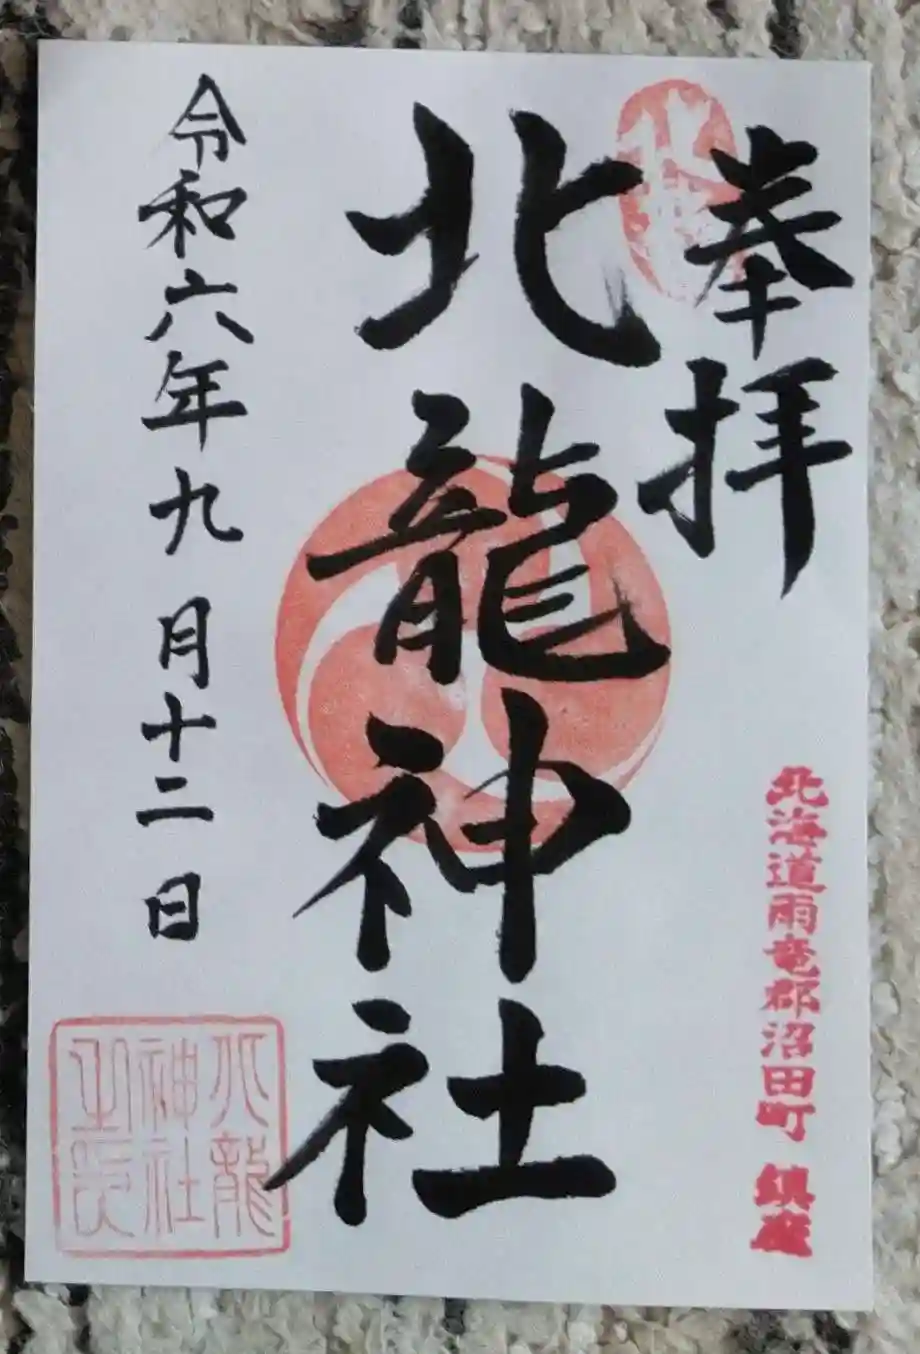 奉拝
北海道雨竜郡沼田町 鎮座
北龍神社
令和六年九月十二日
北龍
神社
之印